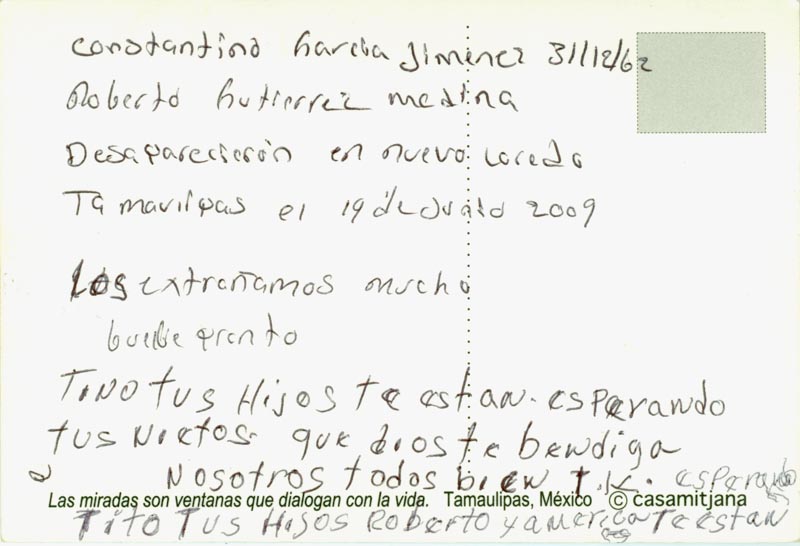 constantino Garcia Jimenez 31/12/62
Roberto Gutierrez medina
Desaparecierón en nuevo Laredo
Tamaulipas el 19 de Junio 2009
Los extrañamos mucho
buelbe pronto
Tino tus Hijos te estan. esperando
tus Nietos. que dios te bendiga
Nosotros todos bien T.K.
Las miradas son ventanas que dialogan con la vida. Tamaulipas, México © casamitjana
Tito Tus Hijos Roberto y america Te estan esperando